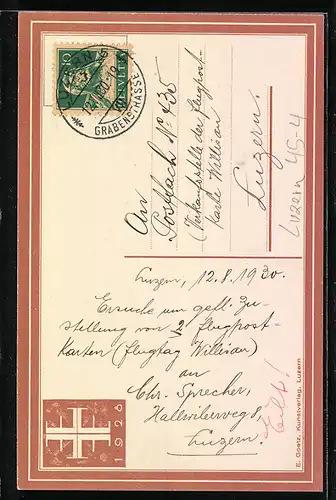 LUZERN
GRABENSTRASSE
HELVETIA
10
An
Postfach No 435
(Verkaufsstelle der Flugpost-
karte Willisau)
Luzern.
Luzern 45-4
Luzern, 12.8.1930.
Ersuche um gefl. Zu-
stellung von 2 Flugpost-
karten (Flugtag Willisau)
an
Chr. Sprecher,
Hallwilerweg 8,
Luzern.
1928
E. Goetz, Kunstverlag, Luzern